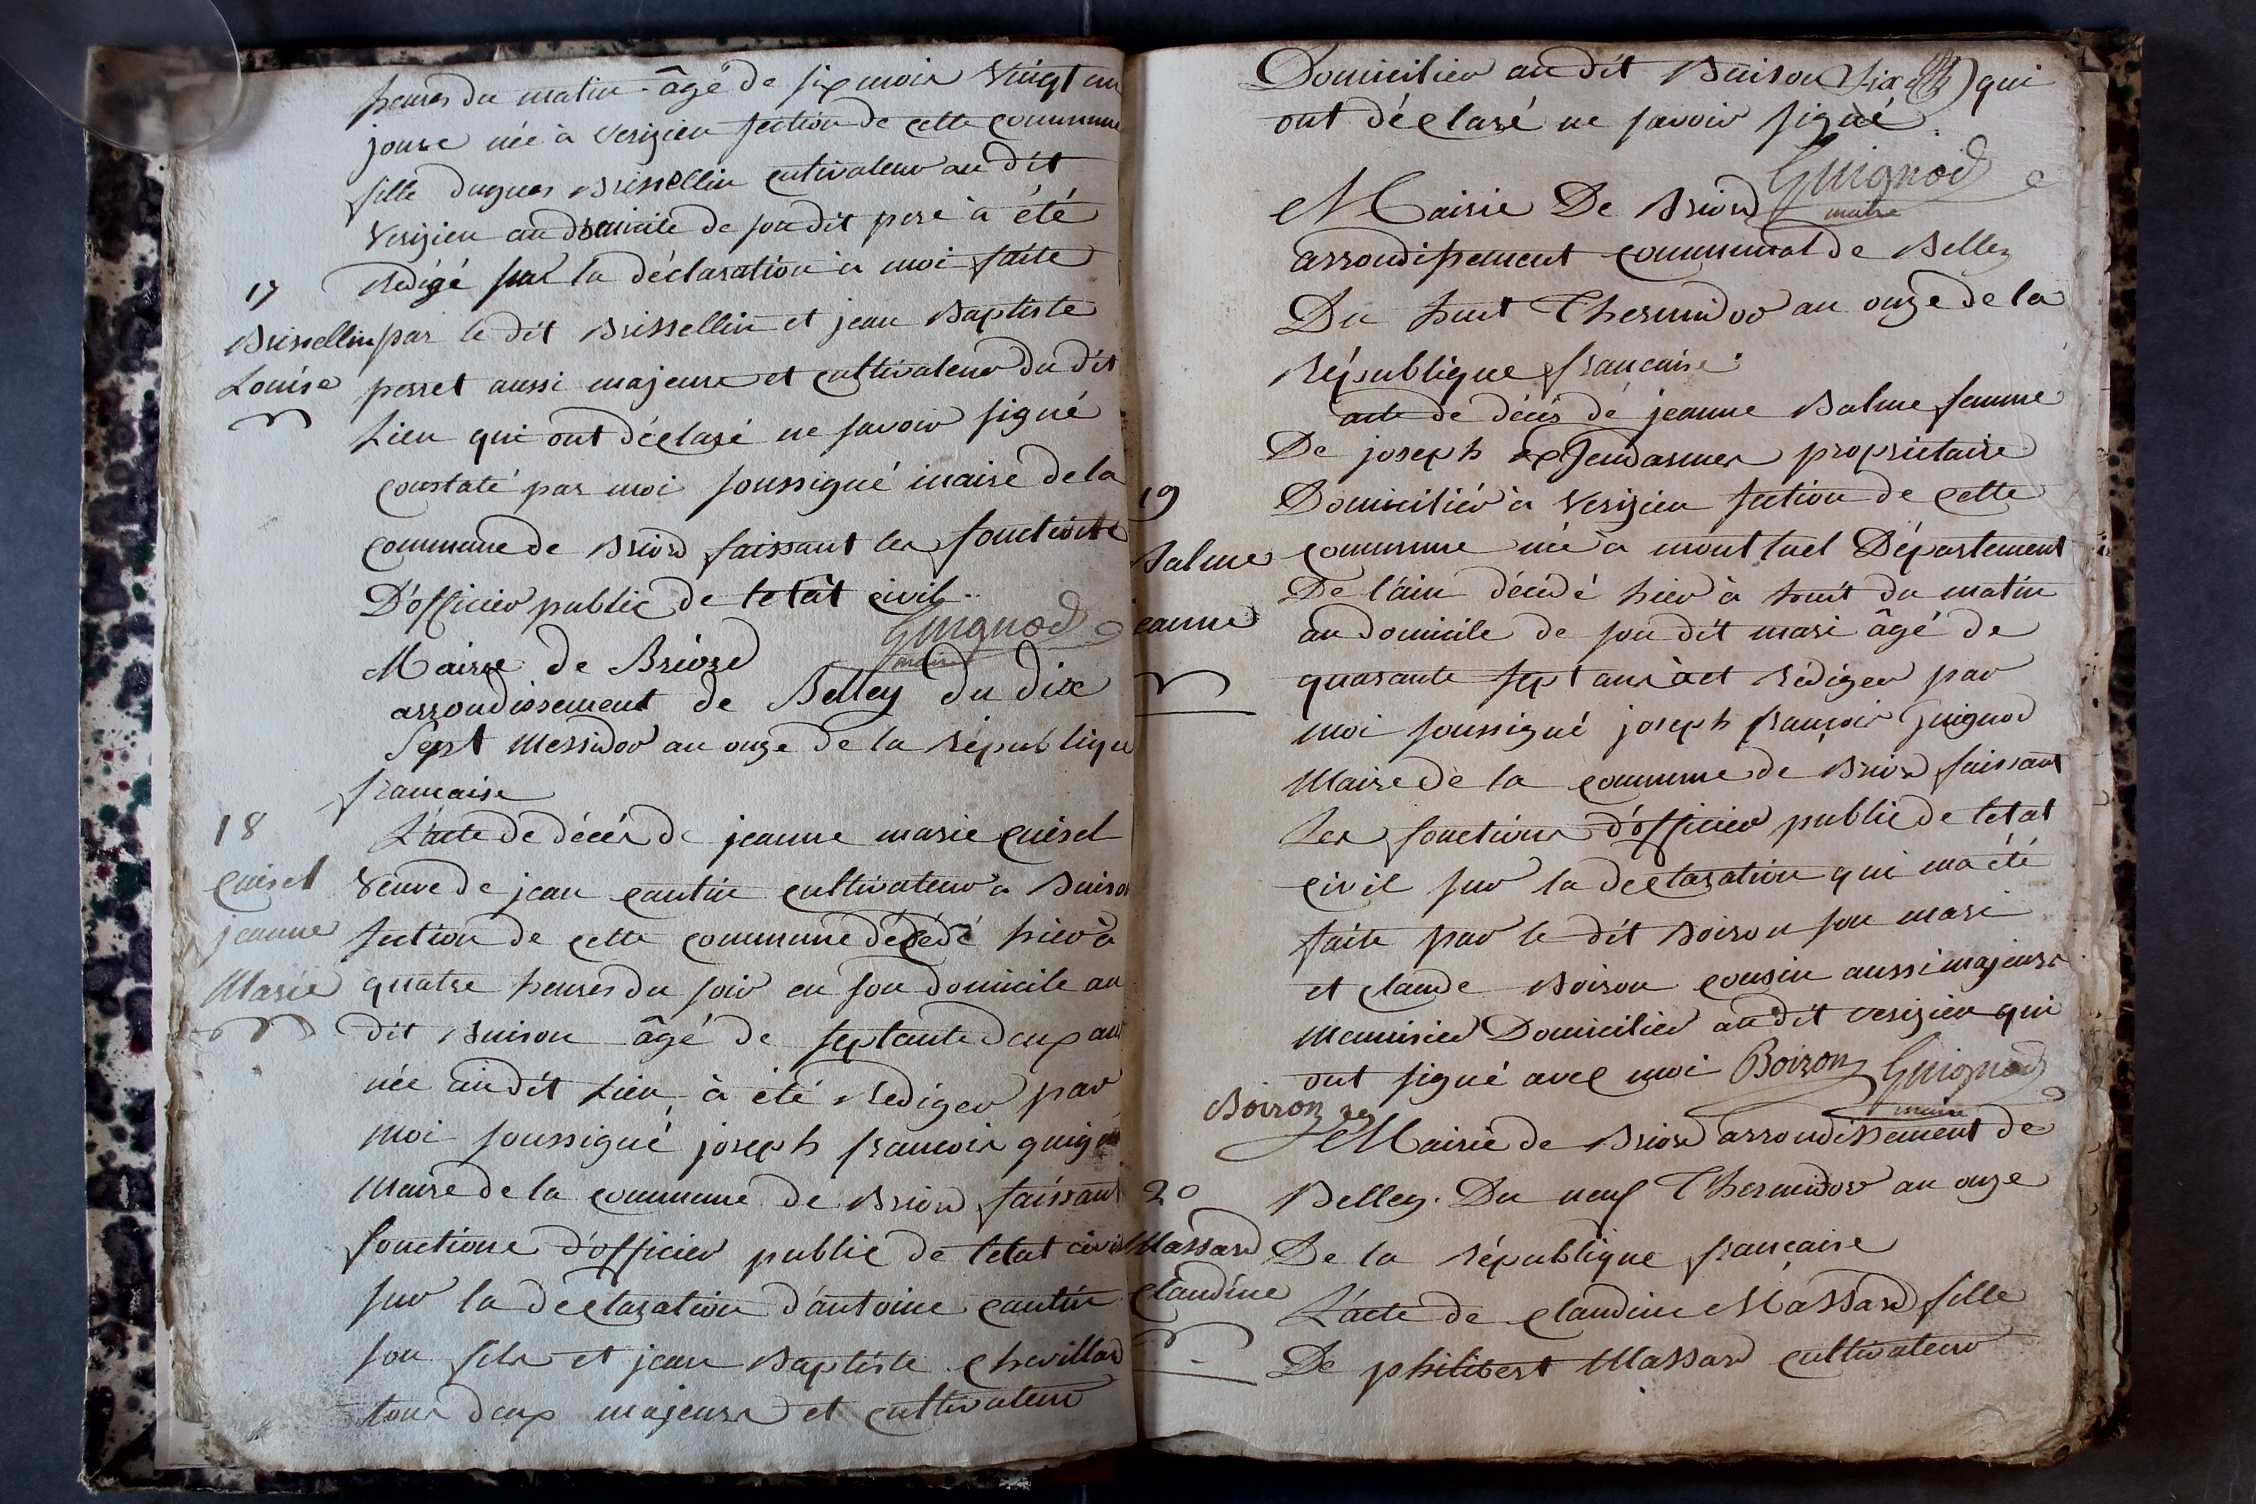 heures du matin âgé de six mois vingt un
jours née à verizieu section de cette commune
fille dugues Brissellin cutivateur au dit
verizieu au domicile de son dit pere à été
redigé sur la déclaration à moi faite
17
Brissellin
Louise
par le dit Brissellin et jean Baptiste
perret aussi majeure et cultivateur du dit
Lieu qui ont déclaré ne savoir signé
constaté par moi soussigné maire de la
commune de Briord faissant les fonctions
D'officier public de letat civil
Guignod
maire
Mairie de Briord
arrondissement de Belley du dix
sept Messidor an onze de la républiqu
francaise
18
Cuisel
jeanne
Marie
L'acte de décés de jeanne marie Cuisel
veuve de jean cantin cultivateur a Buison
section de cette commune décédé hier à
quatre heures du soir en son domicile au
dit Buison âgé de septante deux ans
née au dit Lieu à été Rediger par
moi soussigné joseph francois guignod
Maire de la commune de Briord faissant
fonctions d'officier public de letat civil
sur la declaration d'antoine cantin
son fils et jean Baptiste Chevillard
tous deux majeurs et cultivateur
Domicilier au dit Buison qui
ont déclaré ne savoir signé
Guignod
maire
Mairie De Briord
arrondissement communal de Belley
Du huit Thermidor an onze de la
république francaise
19
Balme
jeanne
acte de décés de jeanne Balme femme
De joseph exGendarmes proprietaire
Domicilier à verizieu section de cette
commune née à montluel Département
De l'ain décédé hier à huit du matin
au domicile de son dit mari âgé de
quarante sept ans àet rédiger par
moi soussigné joseph françois Guignod
Maire de la commune de Briord faissant
Les fonctions d'officier public de letat
civil sur la declaration qui ma été
faite par le dit Boiron son mari
et claude Boiron cousin aussi majeurs
Menuisier Domicilier au dit verizieu qui
ont signé avec moi Boiron Guignod
maire
Boiron
Mairie de Briord arrondissement de
20
Massard
Claudine
Belley. Du neuf Thermidor an onze
De la république francaise
L'acte de claudine Massard fille
De philibert Massard cultivateur